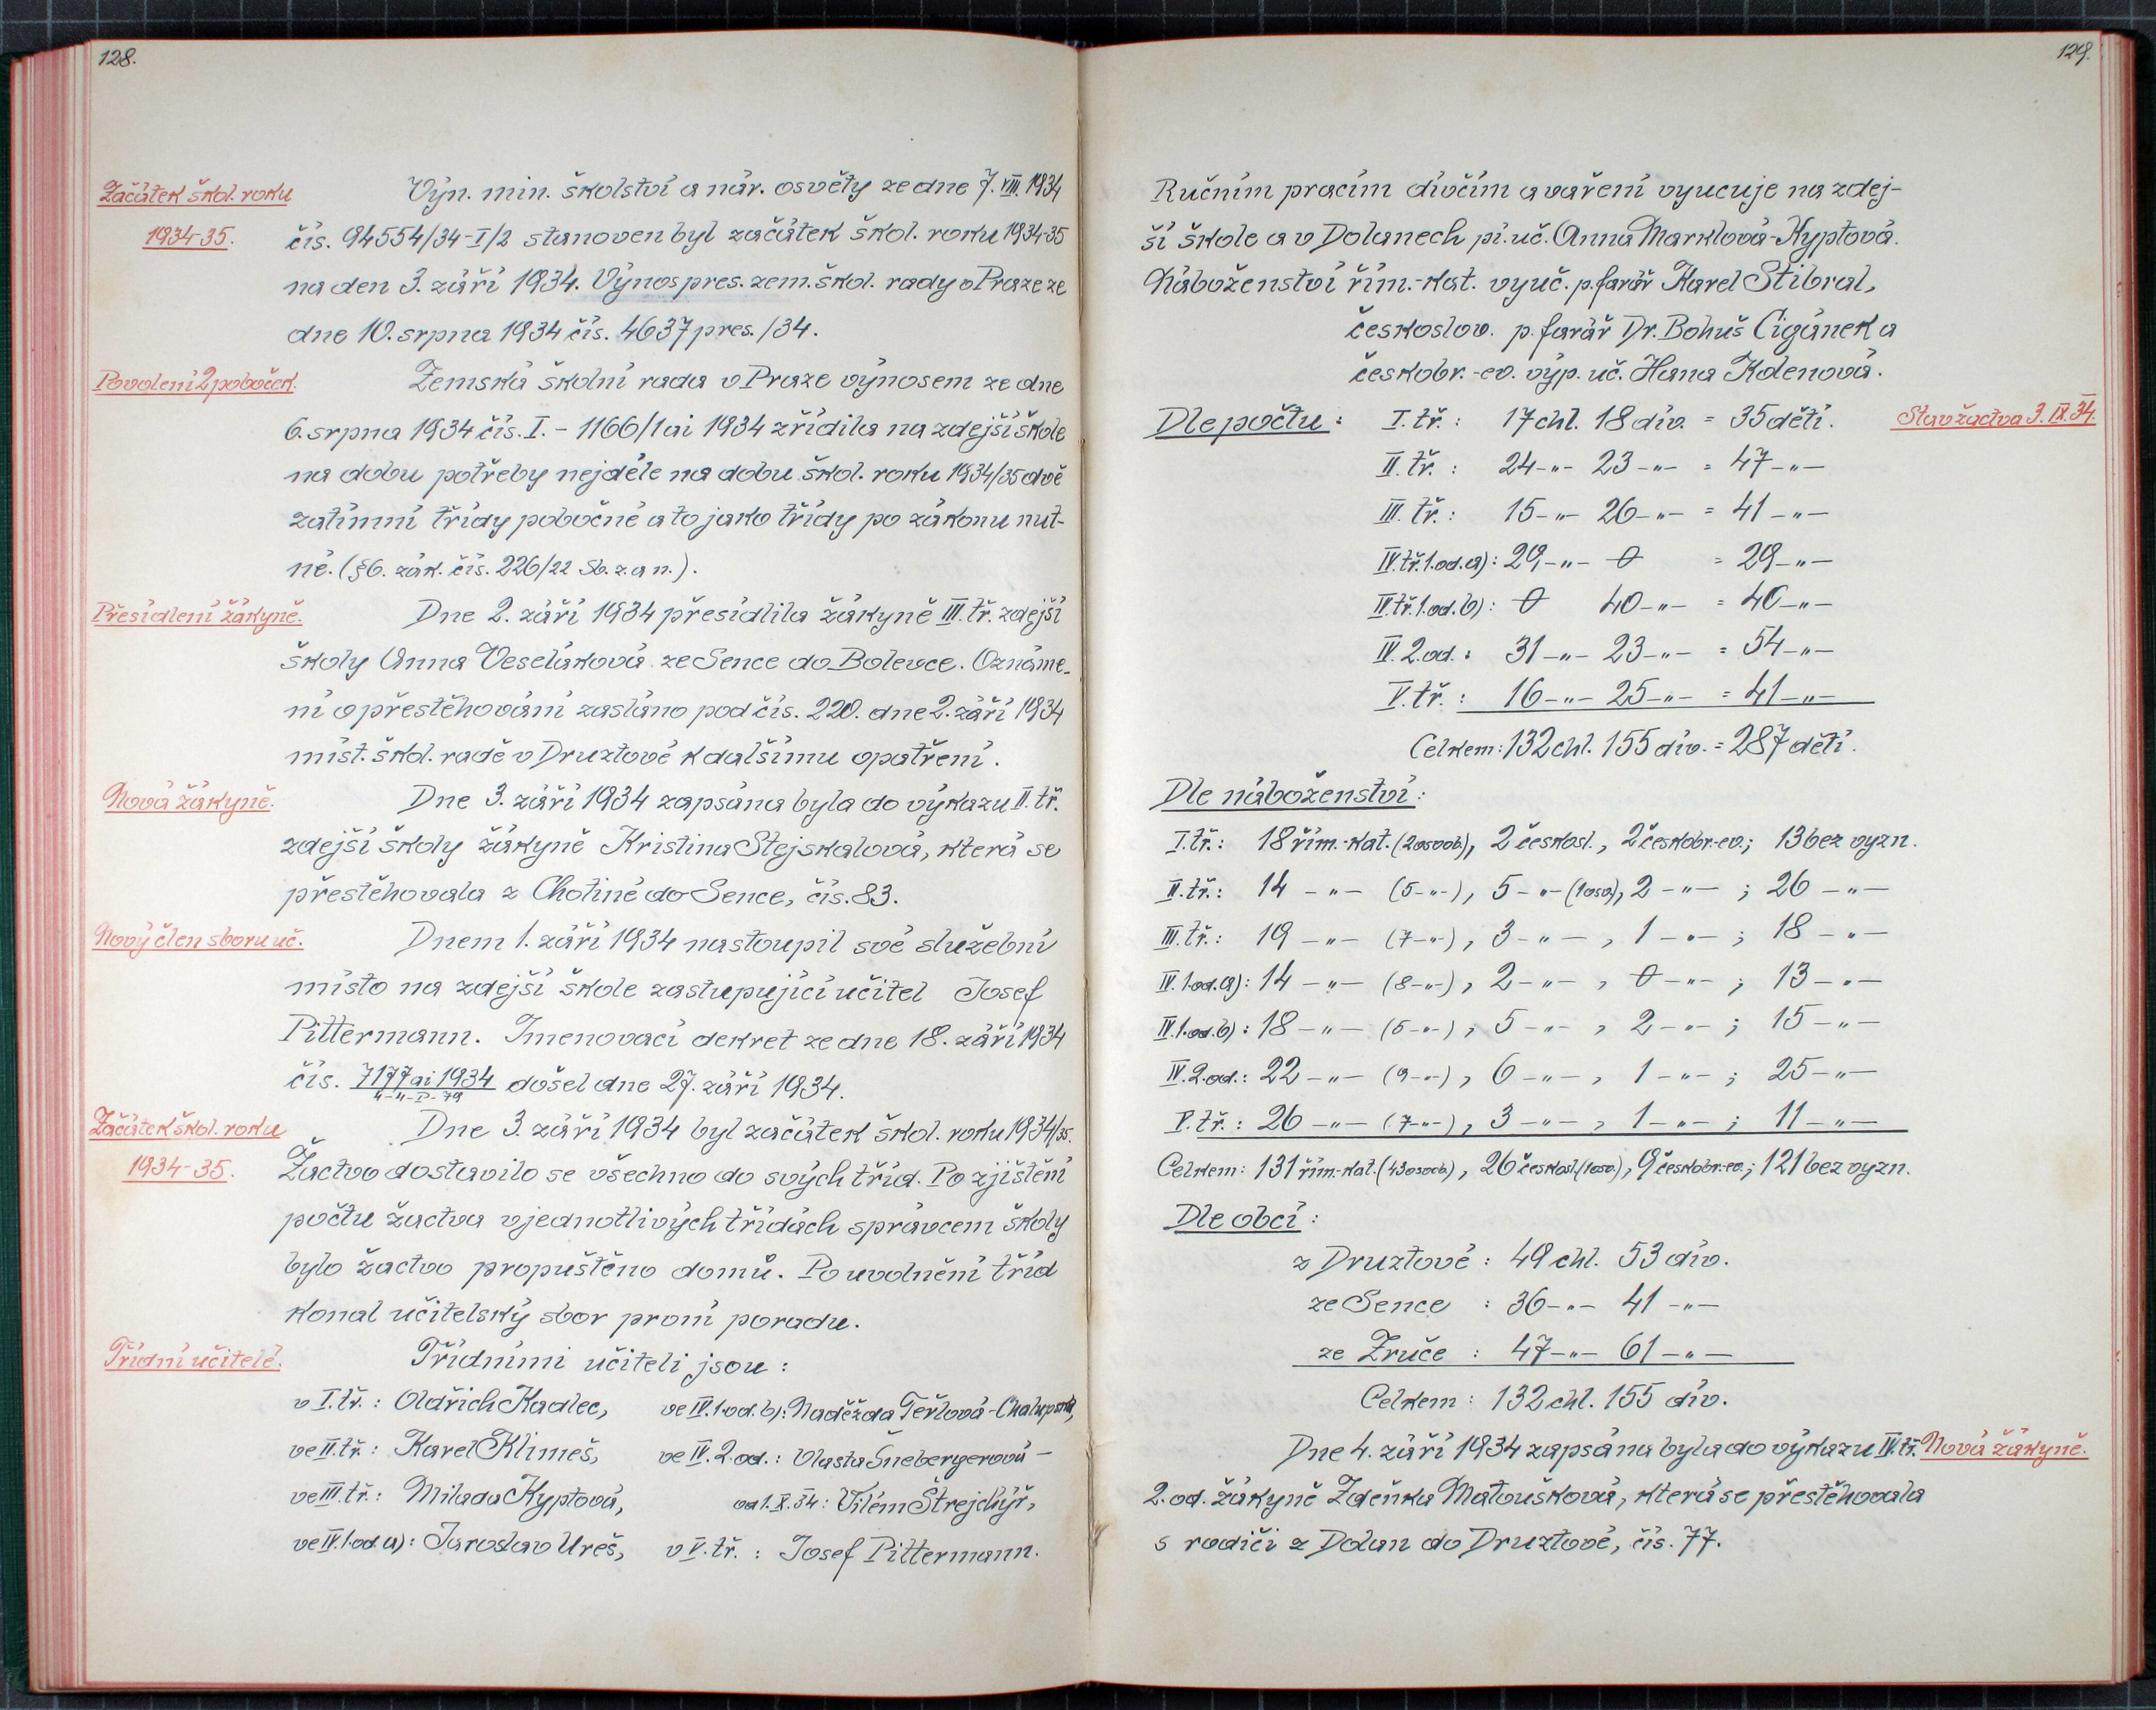 128.
Začátek škol. roku
1934-35.
Výn. min. školství a nár. osvěty ze dne 7. VIII. 1934
čís. 94554/34-I/2 stanoven byl začátek škol. roku 1934-35
na den 3. září 1934. Výnos pres. zem. škol. rady v Praze ze
dne 10. srpna 1934 čís. 4637 pres. /34.
Povolení 2 poboček.
Zemská školní rada v Praze výnosem ze dne
6. srpna 1934 čís. I. - 1166/1 ai 1934 zřídila na zdejší škole
na dobu potřeby nejdéle na dobu škol. roku 1934/35 dvě
zatímní třídy pobočné a to jako třídy po zákonu nut-
né. (§6. zák. čís. 226/22 Sb. z. a n.).
Přesídlení žákyně.
Dne 2. září 1934 přesídlila žákyně III. tř. zdejší
školy Anna Veseláková ze Sence do Bolevce. Oznáme-
ní o přestěhování zasláno pod čís. 220. dne 2. září 1934
míst. škol. radě v Druztové k dalšímu opatření.
Nová žákyně.
Dne 3. září 1934 zapsána byla do výkazu II. tř.
zdejší školy žákyně Kristina Stejskalová, která se
přestěhovala z Chotiné do Sence, čís. 83.
Nový člen sboru uč.
Dnem 1. září 1934 nastoupil své služební
místo na zdejší škole zastupující učitel Josef
Pittermann. Jmenovací dekret ze dne 18. září 1934
čís. 7177 ai 1934 došel dne 27. září 1934.
Začátek škol. roku
1934-35.
Dne 3. září 1934 byl začátek škol. roku 1934/35.
Žactvo dostavilo se všechno do svých tříd. Po zjištění
počtu žactva v jednotlivých třídách správcem školy
bylo žactvo propuštěno domů. Po uvolnění tříd
konal učitelský sbor první poradu.
Třídní učitelé.
Třídními učiteli jsou :
v I. tř. : Oldřich Kadlec, ve IV. 1. od. b) : Naděžda Teřlová-
ve II. tř. : Karel Klimeš, ve IV. 2. od. : Vlasta Šnebergerová -
ve III. tř. : Milada Kyptová, od 1. X. 34 : Vilém Štrejchýř,
ve IV. 1. od. a) : Jaroslav Ureš, v V. tř. : Josef Pittermann.
129.
Ručním pracím dívčím a vaření vyucuje na zdej-
ší škole a v Dolanech pí. uč. Anna Marklová-Kyptová.
Náboženství řím.-kat. vyuč. p. farář Karel Stibral,
českoslov. p. farář Dr. Bohuš Cigánek a
českobr.-ev. výp. uč. Hana Kdenová.
Dle počtu : I. tř. : 17 chl. 18 dív. = 35 dětí.
Stav žactva 3. IX. 34.
II. tř. : 24 -"- 23 -"- = 47 -"-
III. tř. : 15 -"- 26 -"- = 41 -"-
IV. tř. 1. od. a) : 29 -"- 0 = 29 -"-
IV. tř. 1. od. b) : 0 40 -"- = 40 -"-
IV. 2. od. : 31 -"- 23 -"- = 54 -"-
V. tř. : 16 -"- 25 -"- = 41 -"-
Celkem : 132 chl. 155 dív. = 287 dětí.
Dle náboženství :
I. tř. : 18 řím.-kat. (2 osvob.), 2 českosl., 2 českobr.-ev.; 13 bez vyzn.
II. tř. : 14 -"- (5 -"-), 5 -"- (1 osv.), 2 -"- ; 26 -"-
III. tř. : 19 -"- (7 -"-), 3 -"- , 1 -"- ; 18 -"-
IV. 1. od. a) : 14 -"- (8 -"-), 2 -"- , 0 -"- ; 13 -"-
IV. 1. od. b) : 18 -"- (5 -"-), 5 -"- , 2 -"- ; 15 -"-
IV. 2. od. : 22 -"- (9 -"-), 6 -"- , 1 -"- ; 25 -"-
V. tř. : 26 -"- (7 -"-), 3 -"- , 1 -"- ; 11 -"-
Celkem : 131 řím.-kat. (43 osvob.), 26 českosl. (1 osv.), 9 českobr.-ev.; 121 bez vyzn.
Dle obcí :
z Druztové : 49 chl. 53 dív.
ze Sence : 36 -"- 41 -"-
ze Zruče : 47 -"- 61 -"-
Celkem : 132 chl. 155 dív.
Dne 4. září 1934 zapsána byla do výkazu IV. tř.
Nová žákyně.
2. od. žákyně Zdeňka Matoušková, která se přestěhovala
s rodiči z Dolan do Druztové, čís. 77.